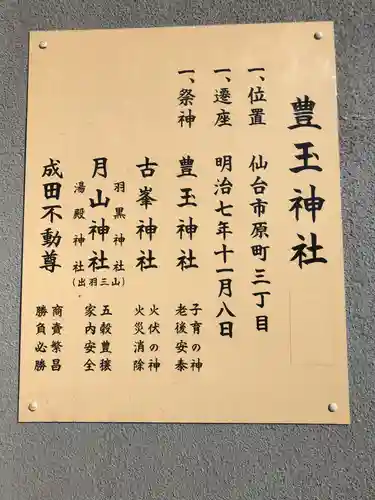 豊玉神社
一、位置 仙台市原町三丁目
一、遷座 明治七年十一月八日
一、祭神 豊玉神社 子育の神
老後安泰
古峯神社 火伏の神
火災消除
羽黒神社
月山神社(出羽三山) 五穀豊穣
湯殿神社 家内安全
成田不動尊 商賣繁昌
勝負必勝